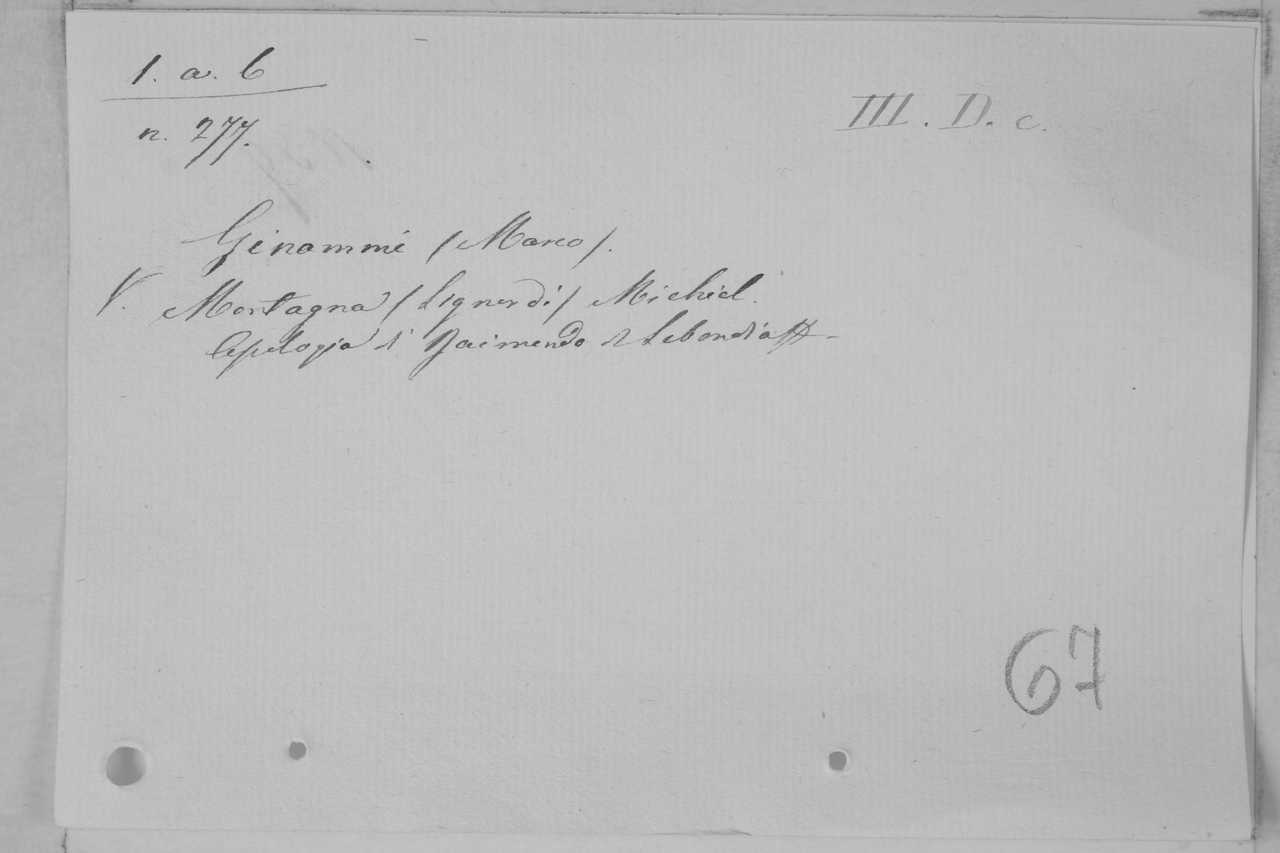 1. a. 6
n. 277.
III. D. c.
Ginammi /Marco/.
V. Montagna /Signor di/ Michiel.
Apologia di Raimondo di Sebonda
67